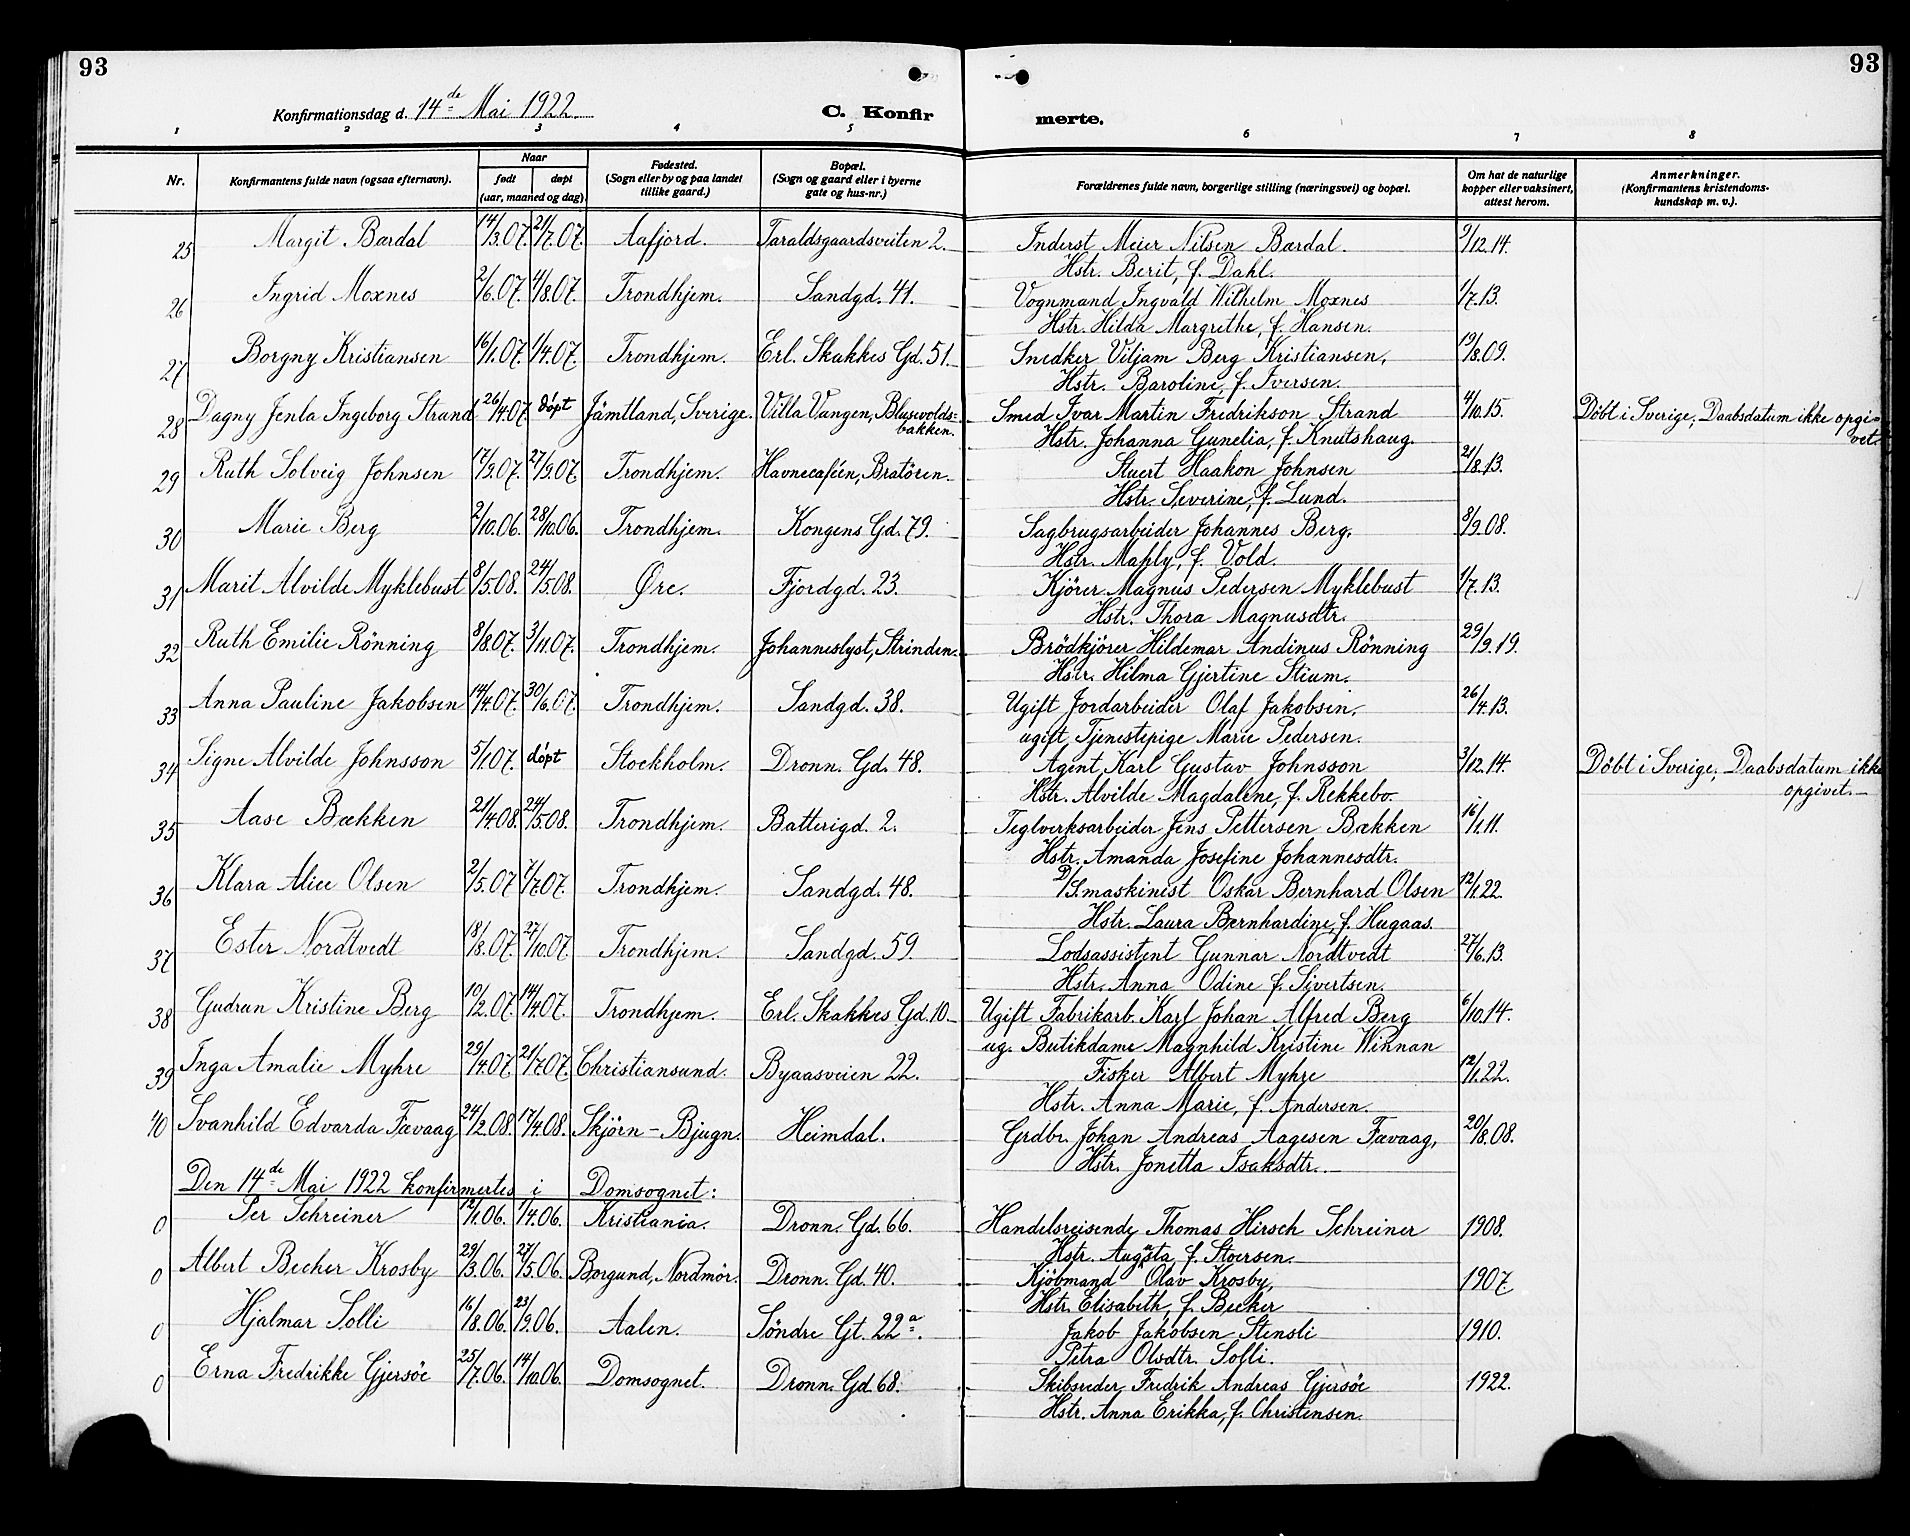 93
93
Konfirmationsdag d. 14de Mai 1922.
C. Konfir
merte.
1 2 3 4 5 6 7 8
Nr.
Konfirmantens fulde navn (ogsaa efternavn).
Naar
født døpt
(aar, maaned og dag).
Fødested.
(Sogn eller by og paa landet
tillike gaard.)
Bopæl.
(Sogn og gaard eller i byerne
gate og hus-nr.)
Forældrenes fulde navn, borgerlige stilling (næringsvei) og bopæl.
Om hat de naturlige
kopper eller vaksinert,
attest herom.
Anmerkninger.
(Konfirmantens kristendoms-
kundskap m. v.).
25 Margit Bardal 14/3.07. 21/7.07. Aafjord. Taraldsgaardsveiten 2. Inderst Meier Nilsen Bardal. 9/12.14.
Hstr. Berit, f. Dahl.
26 Ingrid Moxnes 2/6.07. 4/8.07. Trondhjem. Sandgd. 41. Vognmand Ingvald Wilhelm Moxnes 1/7.13.
Hstr. Hilda Margrethe, f. Hansen.
27 Borgny Kristiansen 16/1.07. 1/4.07. Trondhjem. Erl. Skakkes Gd. 51. Snedker Viljam Berg Kristiansen, 19/8.09.
Hstr. Barolini, f. Iversen.
28 Dagny Jenla Ingeborg Strand 26/4.07. döpt Jämtland, Sverige. Villa Vangen, Blusuvolds-
bakken. Smed Ivar Martin Fredrikson Strand 4/10.15. Döbt i Sverige, Daabsdatum ikke opgi-
vet.
Hstr. Johanna Gunelia, f. Knutshaug.
29 Ruth Solveig Johnsen 17/9.07. 27/9.07. Trondhjem. Havnecaféen, Bratören. Stuert Haakon Johnsen 21/8.13.
Hstr. Severine, f. Lund.
30 Marie Berg 2/10.06. 28/10.06. Trondhjem. Kongens Gd. 79. Sagbrugsarbeider Johannes Berg, 8/9.08.
Hstr. f. Vold.
31 Marit Alvilde Myklebust 8/5.08. 24/5.08. Øre. Fjordgd. 23. Kjörer Magnus Pedersen Myklebust 1/7.13.
Hstr. Thora Magnusdtr.
32 Ruth Emilie Rönning 8/8.07. 3/11.07. Trondhjem. Johanneslyst, Strinden. Brödkjörer Hildemar Andinus Rönning 29/9.19.
Hstr. Hilma Gjertine Stium.
33 Anna Pauline Jakobsen 14/4.07. 30/6.07. Trondhjem. Sandgd. 38. Ugift Jordarbeider Olaf Jakobsen, 26/4.13.
ugift Tjenestepige Marie Pedersen.
34 Signe Alvilde Johnsson 5/1.07. döpt Stockholm. Dronn. Gd. 48. Agent Karl Gustav Johnsson 3/12.14. Döbt i Sverige, Daabsdatum ikke
opgivet.
Hstr. Alvilde Magdalene, f. Rekkebo.
35 Aase Bækken 21/4.08. 24/5.08. Trondhjem. Batterigd. 2. Teglverksarbeider Jens Pettersen Bækken 16/1.11.
Hstr. Amanda Josefine Johannesdtr.
36 Klara Alice Olsen 2/5.07 7/7.07. Trondhjem. Sandgd. 48. D/S.maskinist Oskar Bernhard Olsen 12/1.22.
Hstr. Laura Bernhardine, f. Hugaas.
37 Ester Nordtvedt 18/8.07. 27/10.07. Trondhjem. Sandgd. 59. Lodsassistent Gunnar Nordtvedt 27/6.13.
Hstr. Anna Odine f. Sivertsen.
38 Gudrun Kristine Berg 10/2.07. 14/4.07. Trondhjem. Erl. Skakkes Gd. 10. Ugift Fabrikarb. Karl Johan Alfred Berg 6/10.14.
ug. Butikdame Magnhild Kristine Winnan
39 Inga Amalie Myhre 29/4.07. 21/7.07. Christiansund. Byaasveien 22. Fisker Albert Myhre 12/1.22.
Hstr. Anna Marie, f. Andersen.
40 Svanhild Edvarda Favaag 24/2.08. 17/4.08. Skjörn - Bjugn. Heimdal. Grdbr. Johan Andreas Aagesen Favaag, 20/8.08.
Hstr. Jonetta Isaksdtr.
Den 14de Mai 1922 konfirmertes i Domsognet:
0 Per Schreiner 12/1.06. 1/4.06. Kristiania. Dronn. Gd. 66. Handelsreisende Thomas Hirsch Schreiner 1908.
Hstr. Augusta, f. Stoersen.
0 Albert Becher Krosby 29/3.06. 27/5.06. Borgund, Nordmör. Dronn. Gd. 40. Kjöbmand Olav Krosby, 1907
Hstr. Elisabeth, f. Becker
0 Hjalmar Solli 16/8.06. 23/9.06. Aalen. Söndre Gt. 22a. Jakob Jakobsen Stensli 1910.
Petra Olsdtr. Solli.
0 Erna Fredrikke Gjersöe 25/7.06. 14/10.06. Domsognet. Dronn. Gd 68. Skibsreder Fredrik Andreas Gjersöe 1922.
Hstr. Anna Erikka, f. Christensen.